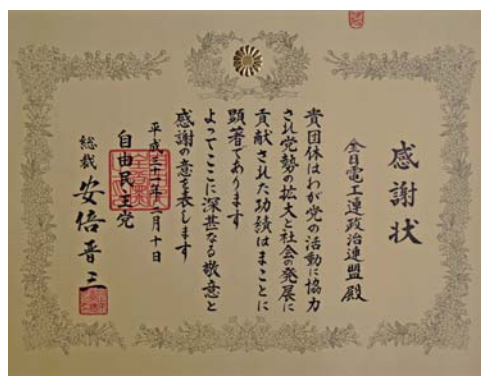 感謝状
全日電工連政治連盟殿
貴団体はわが党の活動に協力
され党勢の拡大と社会の発展に
貢献された功績はまことに
顕著であります
よってここに深甚なる敬意と
感謝の意を表します
平成三十一年二月十日
自由民主党
総裁 安倍晋三